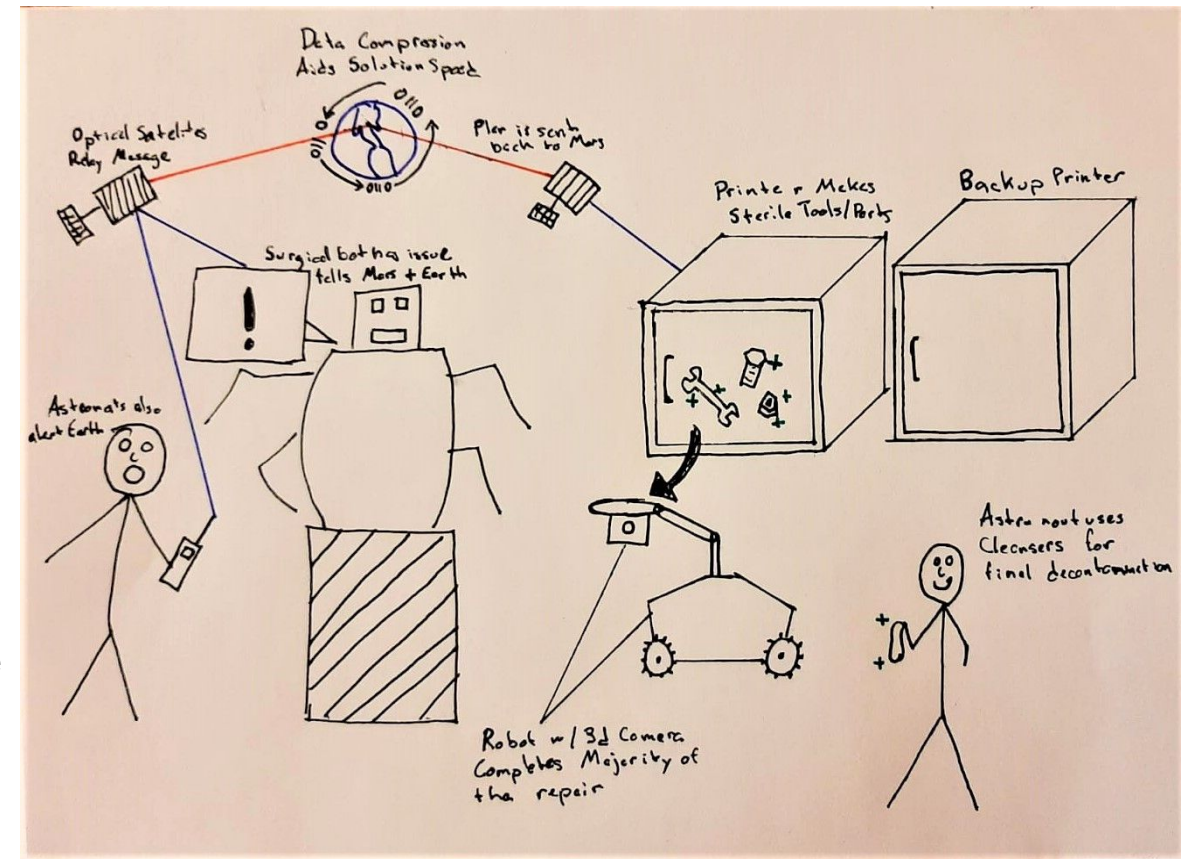 Data Compression
Aids Solution Speed
0110
0110
0110
Optical Satelites
Relay Message
Plan is sent
back to Mars
Printer Makes
Sterile Tools/Parts
Backup Printer
Surgical bot has issue
tells Mars + Earth
!
Astronats also
alert Earth
Astronout uses
Cleansers for
final decontamination
Robot w/ 3d Camera
Completes Majority of
the repair